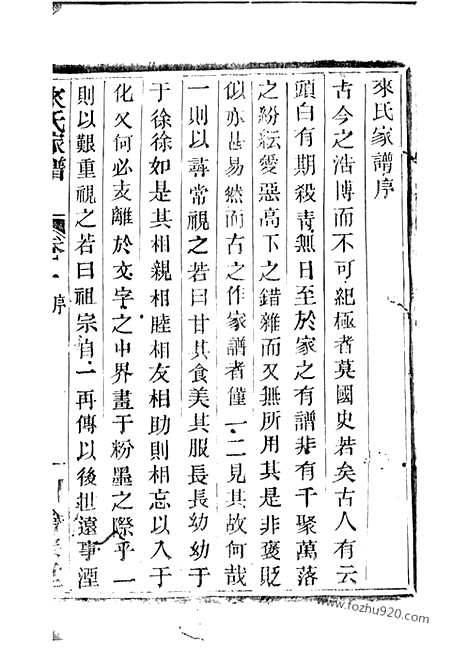 來氏家譜序
古今之浩博而不可紀極者莫國史若矣古人有云
頭白有期殺青無日至於家之有譜非有千聚萬落
之紛紜愛惡高下之錯雜而又無所用其是非褒貶
似亦甚易然而古之作家譜者僅一二見其故何哉
一則以尋常視之若曰甘其食美其服長長幼幼于
于徐徐如是其相親相睦相友相助則相忘以入于
化又何必支離於文字之中界畫于粉墨之際乎一
則以艱重視之若曰祖宗自一再傳以後世遠事湮
來氏家譜
卷一 序
www.fozhu920.com